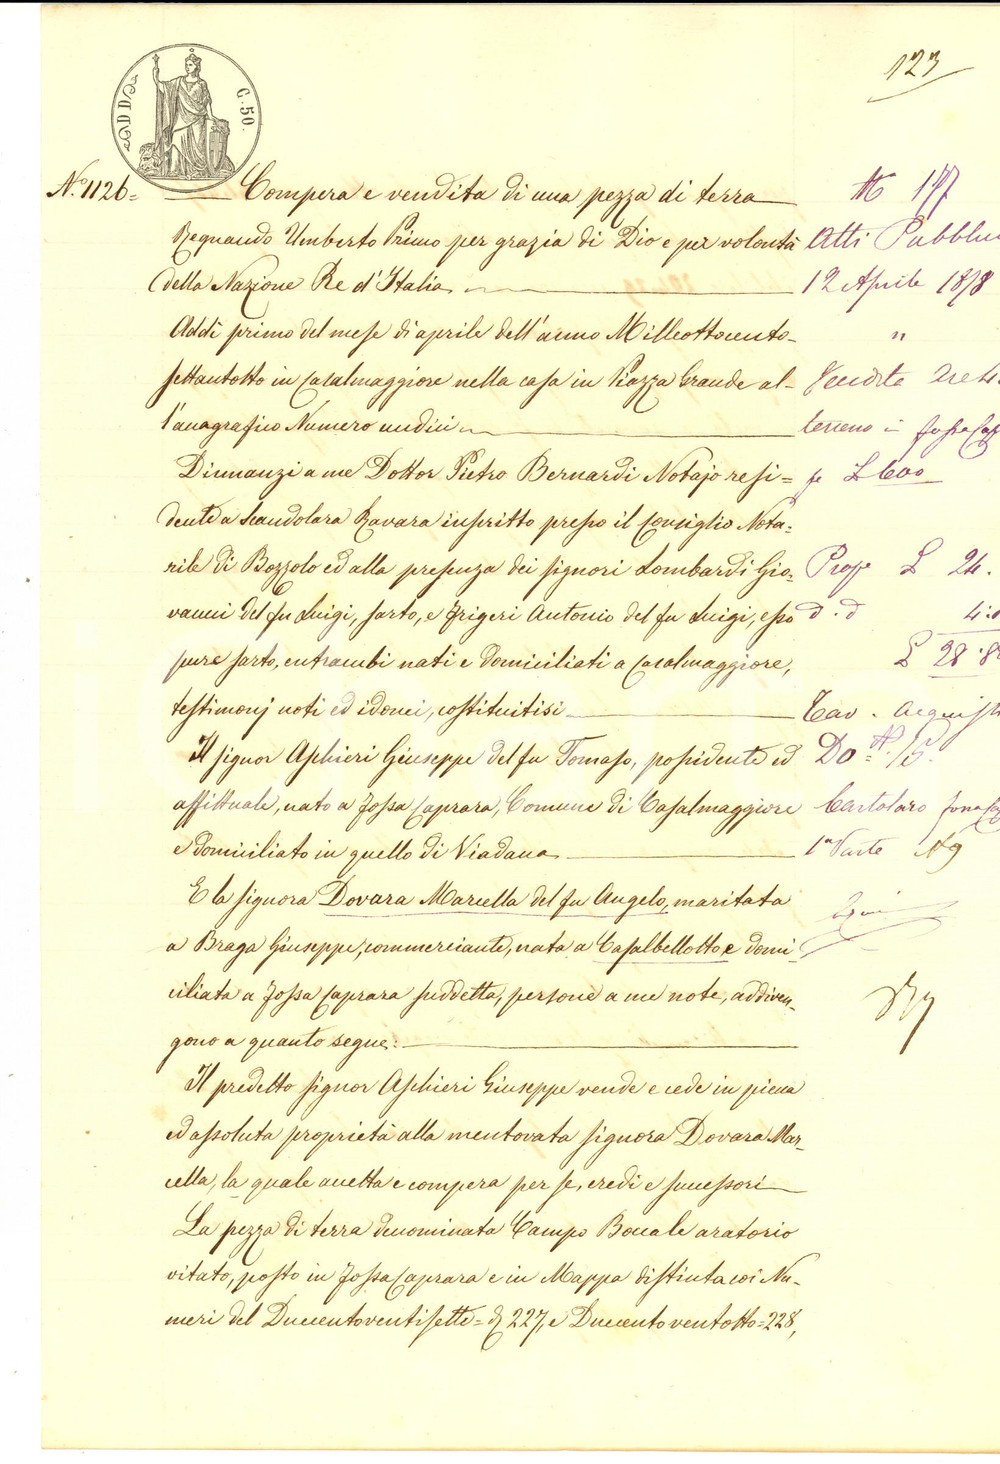 123
DD
C. 50.
N.º 1126= Compera e vendita di una pezza di terra
Regnando Umberto Primo per grazia di Dio e per volontà
della Nazione Re d'Italia
Addì primo del mese di aprile dell'anno Milleottocento-
settantotto in Casalmaggiore nella casa in Piazza Grande al-
l'anagrafico Numero undici
Dinnanzi a me Dottor Pietro Bernardi Notajo resi=
dente a Scandolara Ravara inscritto presso il Consiglio Nota=
rile di Bozzolo ed alla presenza dei signori Lombardi Gio-
vanni del fu Luigi, sarto, e Frigeri Antonio del fu Luigi, esso
pure sarto, entrambi nati e domiciliati a Casalmaggiore,
testimonj noti ed idonei, costituitisi
Il signor Aschieri Giuseppe del fu Tomaso, possidente ed
affittuale, nato a Fossa Caprara, Comune di Casalmaggiore
e domiciliato in quello di Viadana
E la signora Dovara Marcella del fu Angelo, maritata
a Braga Giuseppe, commerciante, nata a Casalbellotto e domi-
ciliata a Fossa Caprara suddetta, persone a me note, addiven-
gono a quanto segue:
Il predetto signor Aschieri Giuseppe vende e cede in piena
ed assoluta proprietà alla mentovata signora Dovara Mar-
cella, la quale accetta e compera per se, eredi e successori
La pezza di terra denominata Campo Bocale aratorio
vitato, posto in Fossa Caprara e in Mappa distinta coi Nu-
meri del Duecentoventisette = 227, e Duecentoventotto = 228,
N 197
Atti Pubblici
12 Aprile 1878
"
Vendita
terreno in Fossa Cap
L 600
Prop L 24.
d. d 4.
L 28.8
Tav. Acquisti
Do N. 15.
Cartolaro Fossa Cap
1ª Parte N 9